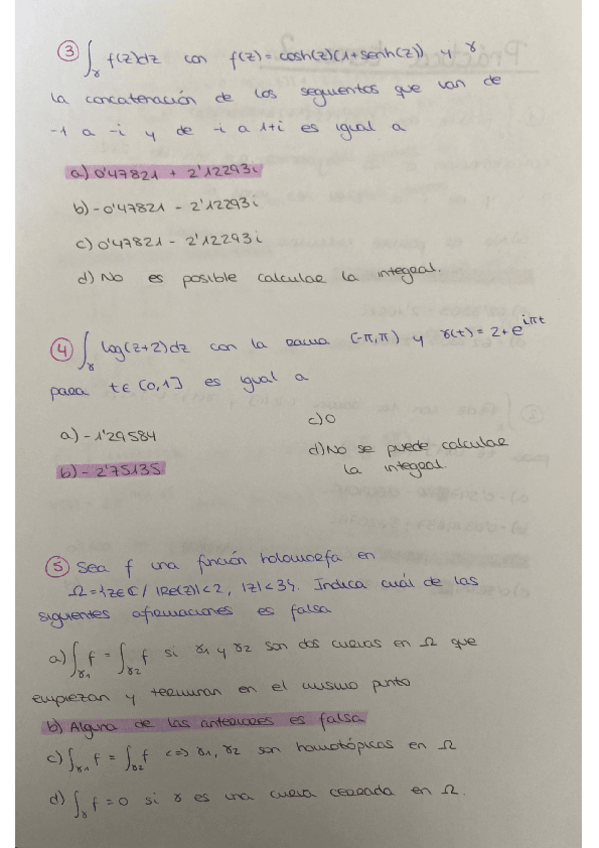 ③ ∫γ f(z)dz con f(z) = cosh(z)(1+senh(z)) y γ
la concatenación de los segmentos que van de
-1 a -i y de -i a 1+i es igual a
a) 0'47821 + 2'12293i
b) -0'47821 - 2'12293i
c) 0'47821 - 2'12293i
d) No es posible calcular la integral.
④ ∫γ log(z+2)dz con la rama (-π,π) y γ(t) = 2+e^{iπt}
para t∈[0,1] es igual a
a) -1'29584
b) -2'75135
c) 0
d) No se puede calcular
la integral.
⑤ Sea f una función holomorfa en
Ω = {z∈ℂ / |Re(z)|<2, |z|<3}. Indica cuál de las
siguientes afirmaciones es falsa
a) ∫γ1 f = ∫γ2 f si γ1 y γ2 son dos curvas en Ω que
empiezan y terminan en el mismo punto
b) Alguna de las anteriores es falsa
c) ∫γ1 f = ∫γ2 f <=> γ1, γ2 son homotópicas en Ω
d) ∫γ f = 0 si γ es una curva cerrada en Ω.